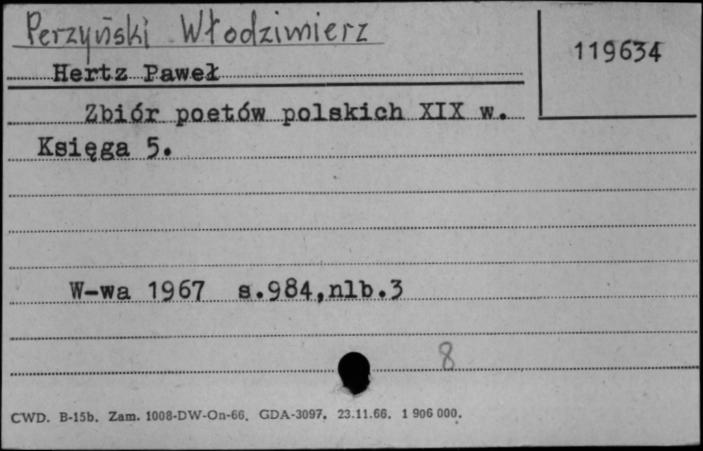 Perzyński Włodzimierz
119634
Hertz Paweł
Zbiór poetów polskich XIX w.
Księga 5.
W-wa 1967 s.984,nlb.3
8
CWD. B-15b. Zam. 1008-DW-On-66. GDA-3097. 23.11.66. 1 906 000.